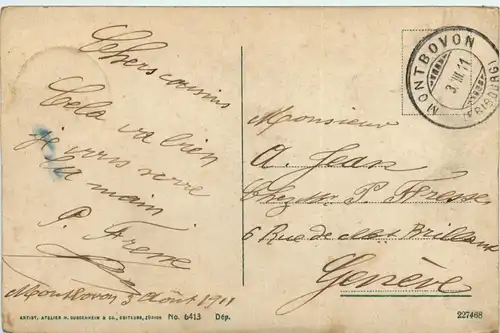 Chers cousins
Cela va bien
je vous serre
la main
P. Frene
Montbovon 5 Août 1911
Monsieur
A. Jean
Chez Mr P. Frene
6 Rue de Mt Brillant
Genève
MONTBOVON
3.III.11.
(FRIBOURG)
ARTIST. ATELIER H. GUGGENHEIM & CO., EDITEURS, ZÜRICH No. 6413 Dép.
227468